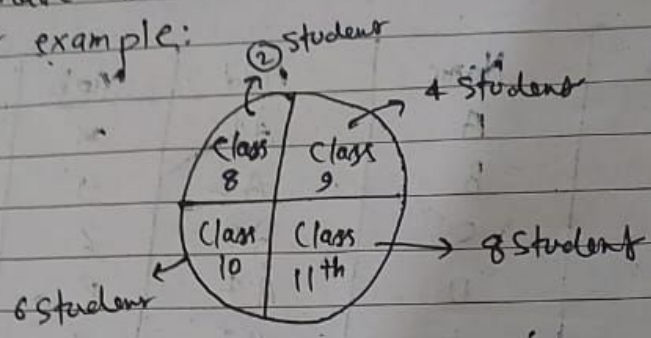 example:
② Student
4 Student
Class
8
Class
9
Class
10
Class
11th
8 Student
6 Student